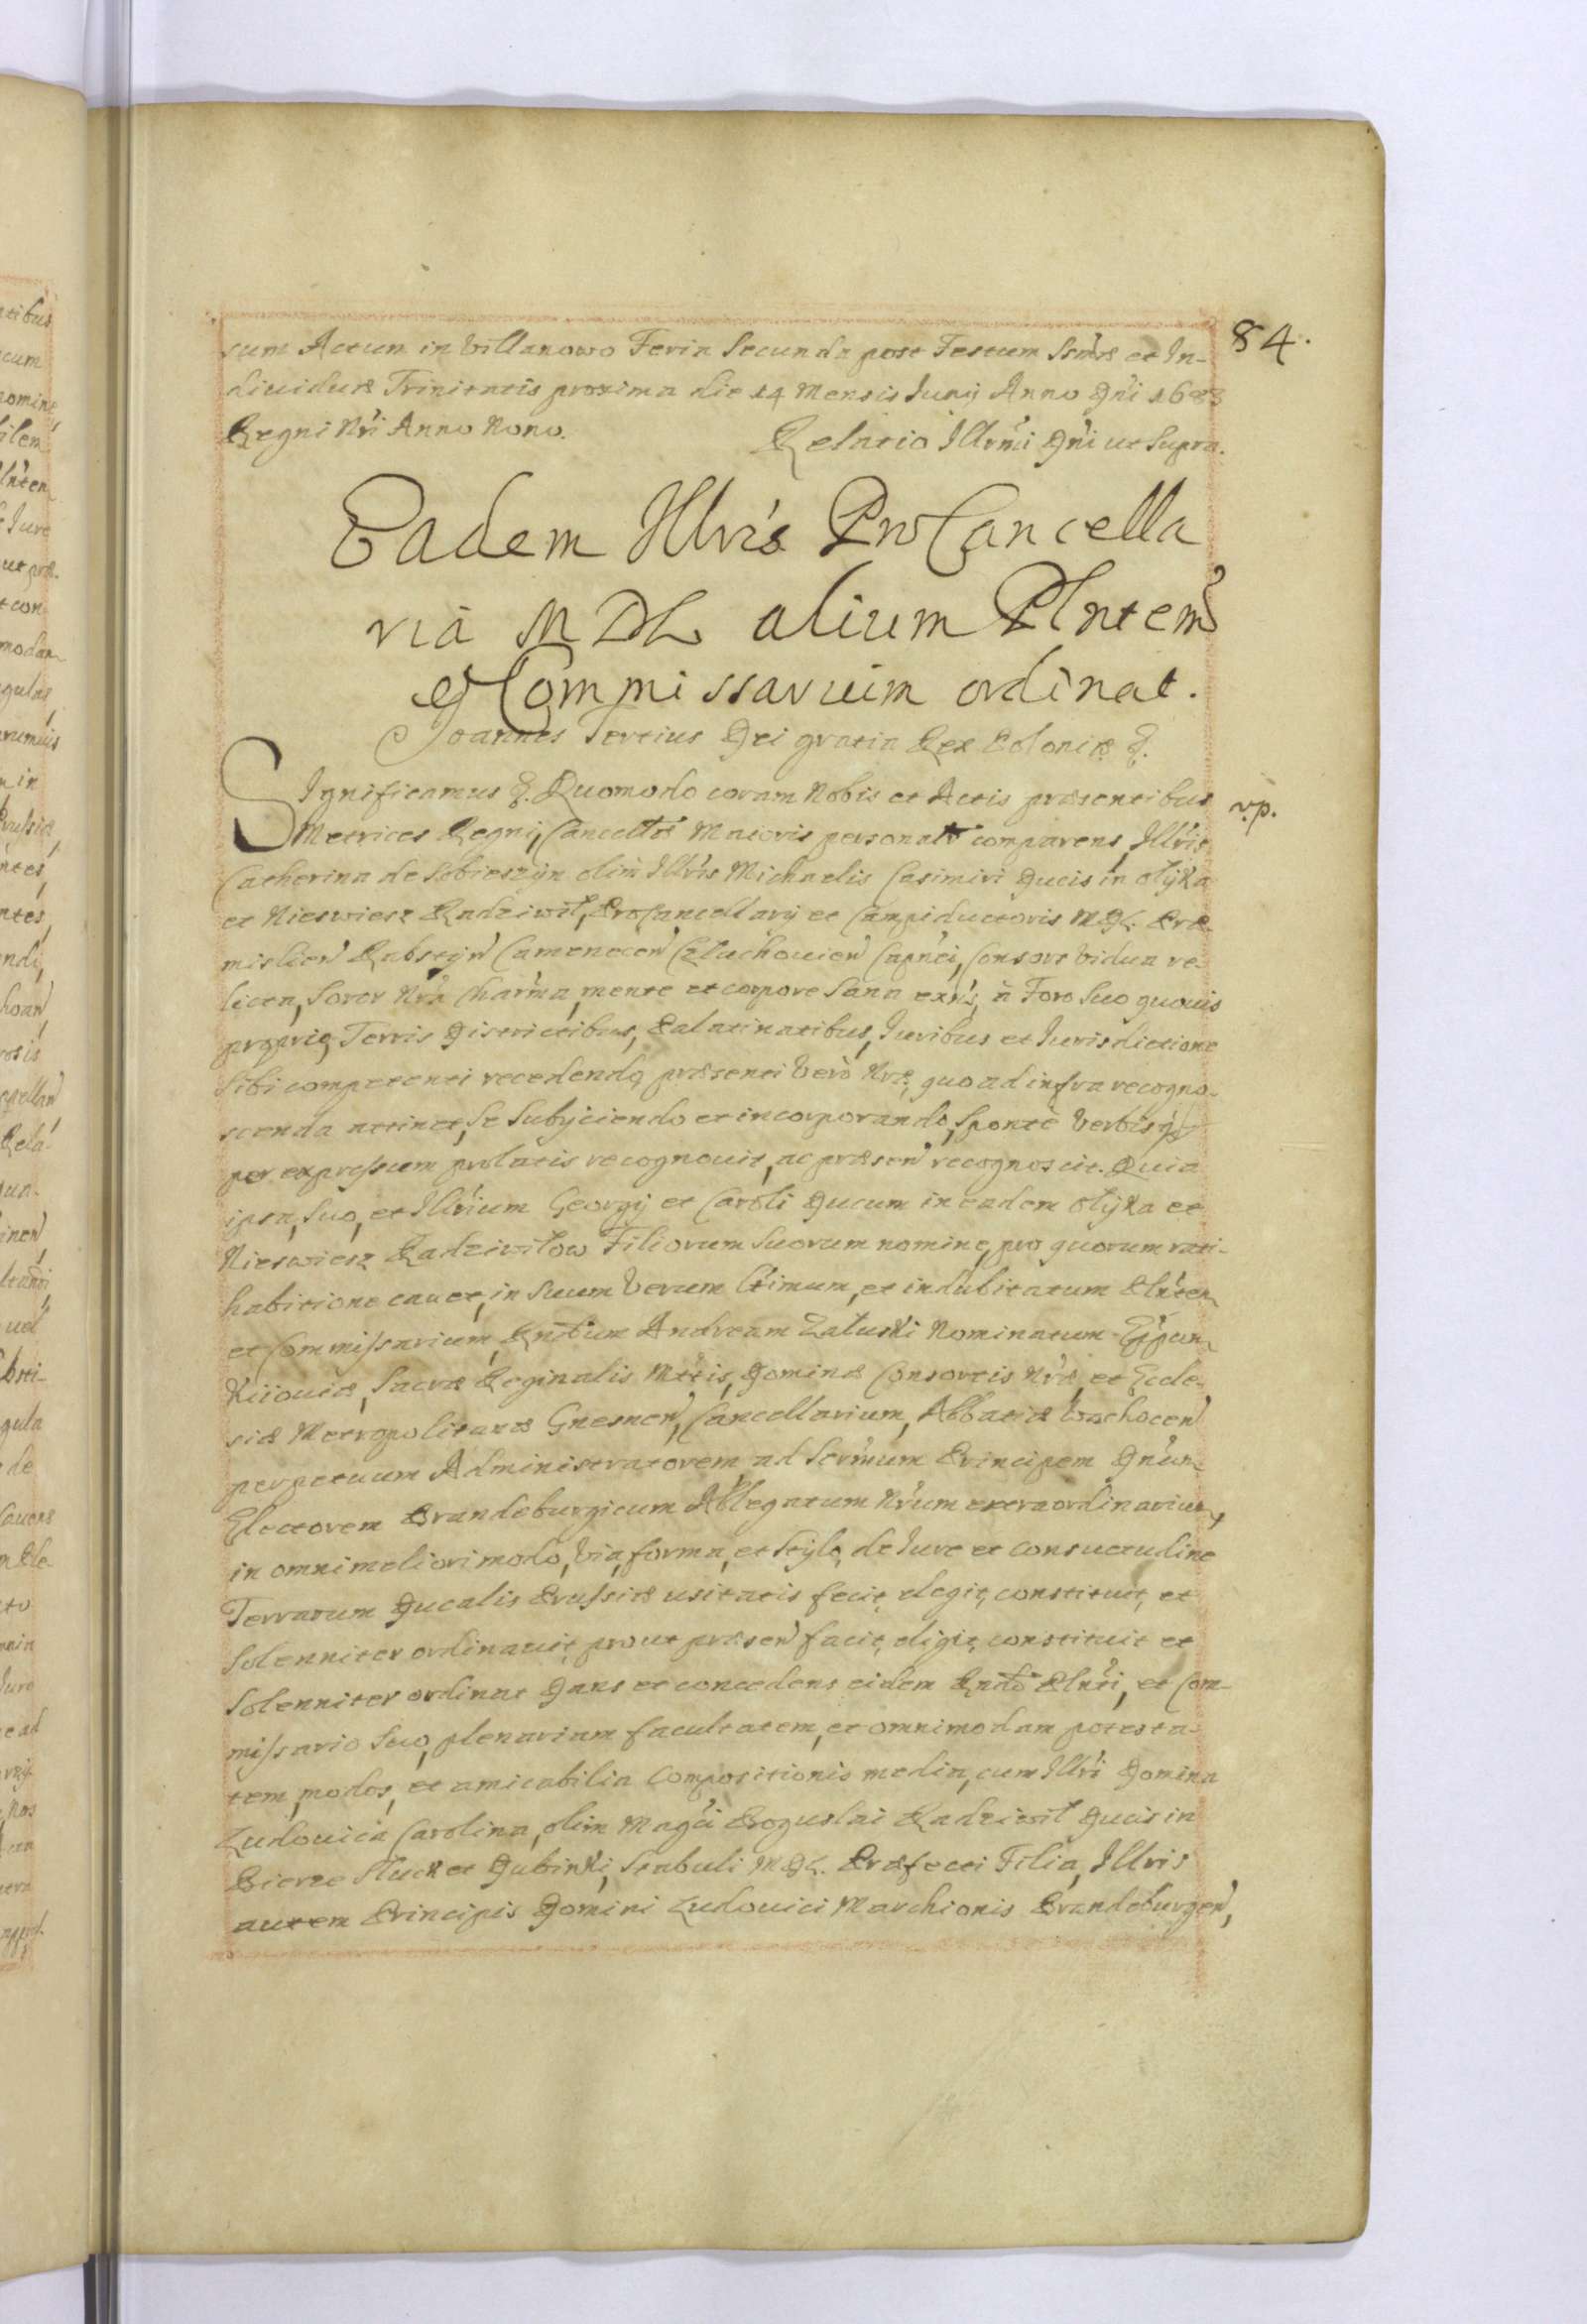 84.
sum Actum in Villanowo Feria Secunda post Festum Sctmæ et In-
diuiduæ Trinitatis proxima die 14 Mensis Junij Anno Dni 1683
Regni Nri Anno Nono. Relatio Illrmi Dni ut Supra.
Eadem Illris ProCancella
ria MDL alium Plntem
et Commissarium ordinat.
Joannes Tertius Dei gratia Rex Poloniæ &.
Significamus &. Quomodo coram Nobis et Actis præsentibus
v.p.
Metrices Regni, Cancellræ Maioris personalr comparens, Illris
Catherina de Sobieszyn olim Illris Michaelis Casimiri Ducis in Olÿka
et Nieswiesz Radziwił, ProCancellarij et Campiductoris MDL. Præ-
mislien Rabsztÿn Camenecen Człuchouien Capnei, Consors Vidua re-
licta, Soror Nra Charma, mente et corpore Sana exns, à Foro Suo quouis
proprio, Terris Districtibus, Palatinatibus, Juribus et Jurisdictione
Sibi competenti recedendo, præsenti Verò Nræ, quo ad infra recogno-
scenda attinet, Se Subijciendo et incorporando, Sponte Verbisq
per expressum prolatis recognouit, ac præsen recognoscit. Quia
ipsa, Suo, et Illrium Georgij et Caroli Ducum in eadem Olÿka et
Nieswiesz Radziwiłow Filiorum Suorum nomine, pro quorum rati-
habitione cauet, in Suum Verum Ltimum, et indubitatum Plnten
et Commissarium, Rndum Andream Załuski Nominatum Eppum
Kiiouiæ, Sacræ Reginalis Mttis, Dominæ Consortis Nræ, et Eccle-
siæ Metropolitanæ Gnesnen, Cancellarium, Abbatiæ Wachocen
perpetuum Administratorem ad Sermum Principem Dnum
Electorem Brandeburgicum Ablegatum Nrum extraordinarium,
in omni meliori modo, Via, forma, et Stÿlo, de Jure et consuetudine
Terrarum Ducalis Prussiæ usitatis fecit, elegit, constituit, et
Solenniter ordinauit, prout præsen facit, eligit, constituit et
Solenniter ordinat Dans et concedens eidem Rndo Plnti, et Com-
missario Suo, plenariam facultatem, et omnimodam potesta-
tem, modos, et amicabilia Compositionis media, cum Illri Domina
Ludouica Carolina, olim Magci Boguslai Radziwił Ducis in
Bierze Sluck et Dubinki, Stabuli MDL. Præfecti Filia, Illris
autem Principis Domini Ludouici Marchionis Brandeburgen,